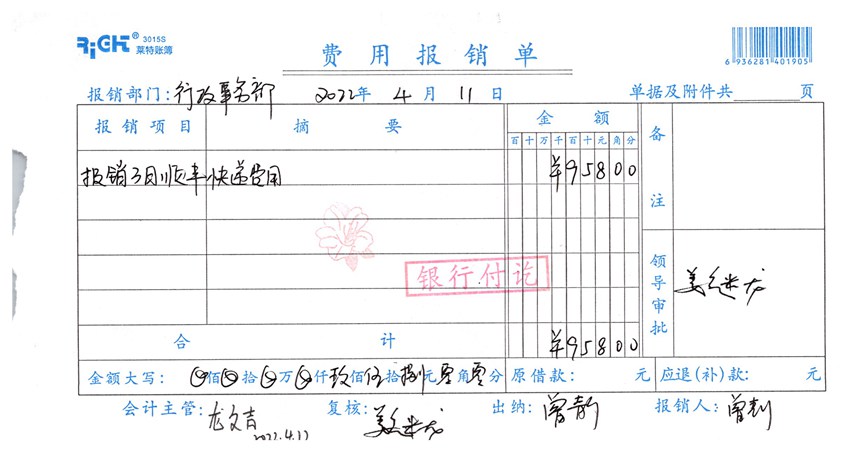 RiGHT® 3015S
莱特账簿
费用报销单
6 936281 401905
报销部门:行政事务部 2022年 4月 11日 单据及附件共____页
报销项目 摘要 金额 备注
百十万千百十元角分
报销3月顺丰快递费用 ¥95800
银行付讫
领导审批
合计 ¥95800
金额大写: 佰 拾 万 仟 玖佰 伍拾 捌元 零角 零分 原借款: 元 应退(补)款: 元
会计主管:龙文吉 复核: 出纳: 报销人:
2022.4.12